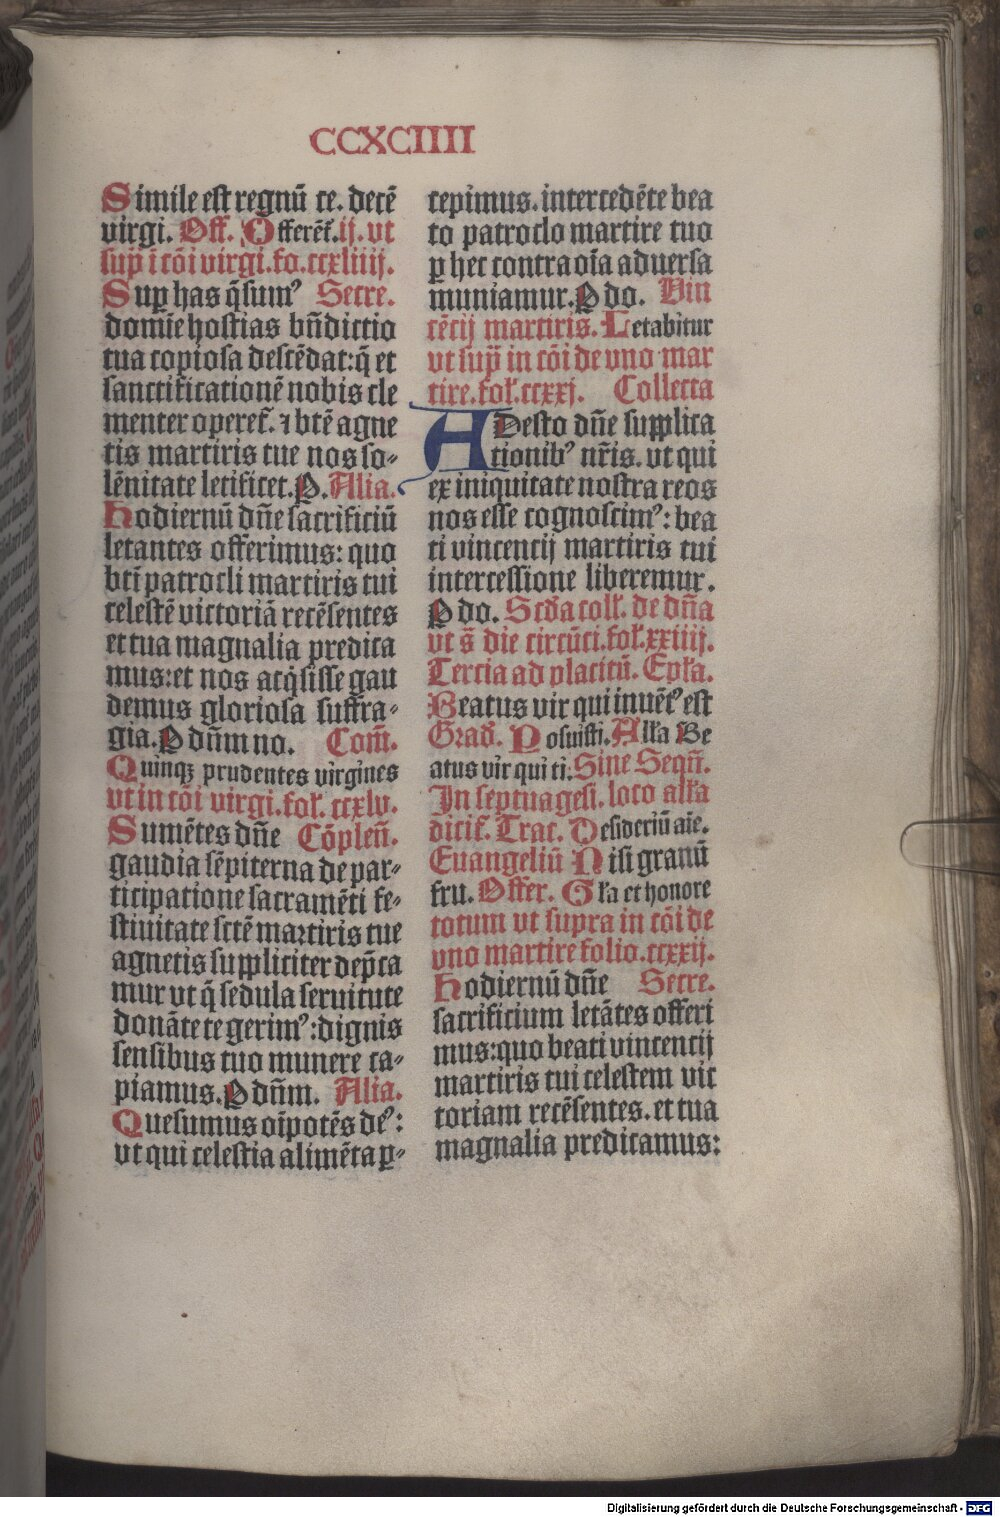 CCXCIIII
Simile est regnū ce. decē
virgi. Off. Offerēt̄. ij. vt
sup̄ ī cōi virgi. fo. ccxliiij.
Sup has q̄sum⁹ Secre.
domīe hostias bn̄dictio
tua copiosa descēdat: q̄ et
sanctificationē nobis cle
menter operet̄. ⁊ btē agne
tis martiris tue nos so-
lēnitate letificet. P. Alia.
Hodiernū dn̄e sacrificiū
letantes offerimus: quo
bti̅ patrocli martiris tui
celestē victoriā recēsentes
et tua magnalia predica
mus: et nos acq̄sisse gau
demus gloriosa suffra-
gia. P dn̄m no. Com̄.
Quinqꝫ prudentes virgines
vt in cōi virgi. fol̄. ccxlv.
Sumētes dn̄e Cōplen̄.
gaudia sēpiterna de par-
ticipatione sacramēti fe-
stiuitate sctē maꝛtiris tue
agnetis suppliciter dep̄ca
mur vt q̄ sedula seruitute
donāte te gerim⁹: dignis
sensibus tuo munere ca-
piamus. P dn̄m. Alia.
Quesumus oīpotēs de⁹:
vt qui celestia alimēta ꝑ-
cepimus. intercedēte bea
to patroclo martire tuo
ꝑ hec contra oīa aduersa
muniamur. P do. Vin
cētij martiris. Letabitur
vt sup̄ in cōi de vno mar
tire. fol̄. ccxxj. Collecta
ADesto dn̄e supplica
tionib⁹ nr̄is. vt qui
ex iniquitate nostra reos
nos esse cognoscim⁹: bea
ti vincentij martiris tui
intercessione liberemur.
P do. Scd̄a coll̄. de dn̄a
vt s̄ die circūci. fol̄. xxiiij.
Tercia ad placitū. Epl̄a.
Beatus vir qui inuēt⁹ est
Grad̄. Posuisti. All̄a Be
atus vir qui ti. Sine Seqn̄.
In septuagesi. loco all̄a
dicit̄. Trac. Desideriū aīe.
Euangeliū Nisi granū
fru. Offer. Gl̄a et honore
totum vt supra in cōi de
vno martire folio. ccxxij.
Hodiernū dn̄e Secre.
sacrificium letātes offeri
mus: quo beati vincentij
martiris tui celestem vic
toriam recēsentes. et tua
magnalia predicamus:
Digitalisierung gefördert durch die Deutsche Forschungsgemeinschaft - DFG